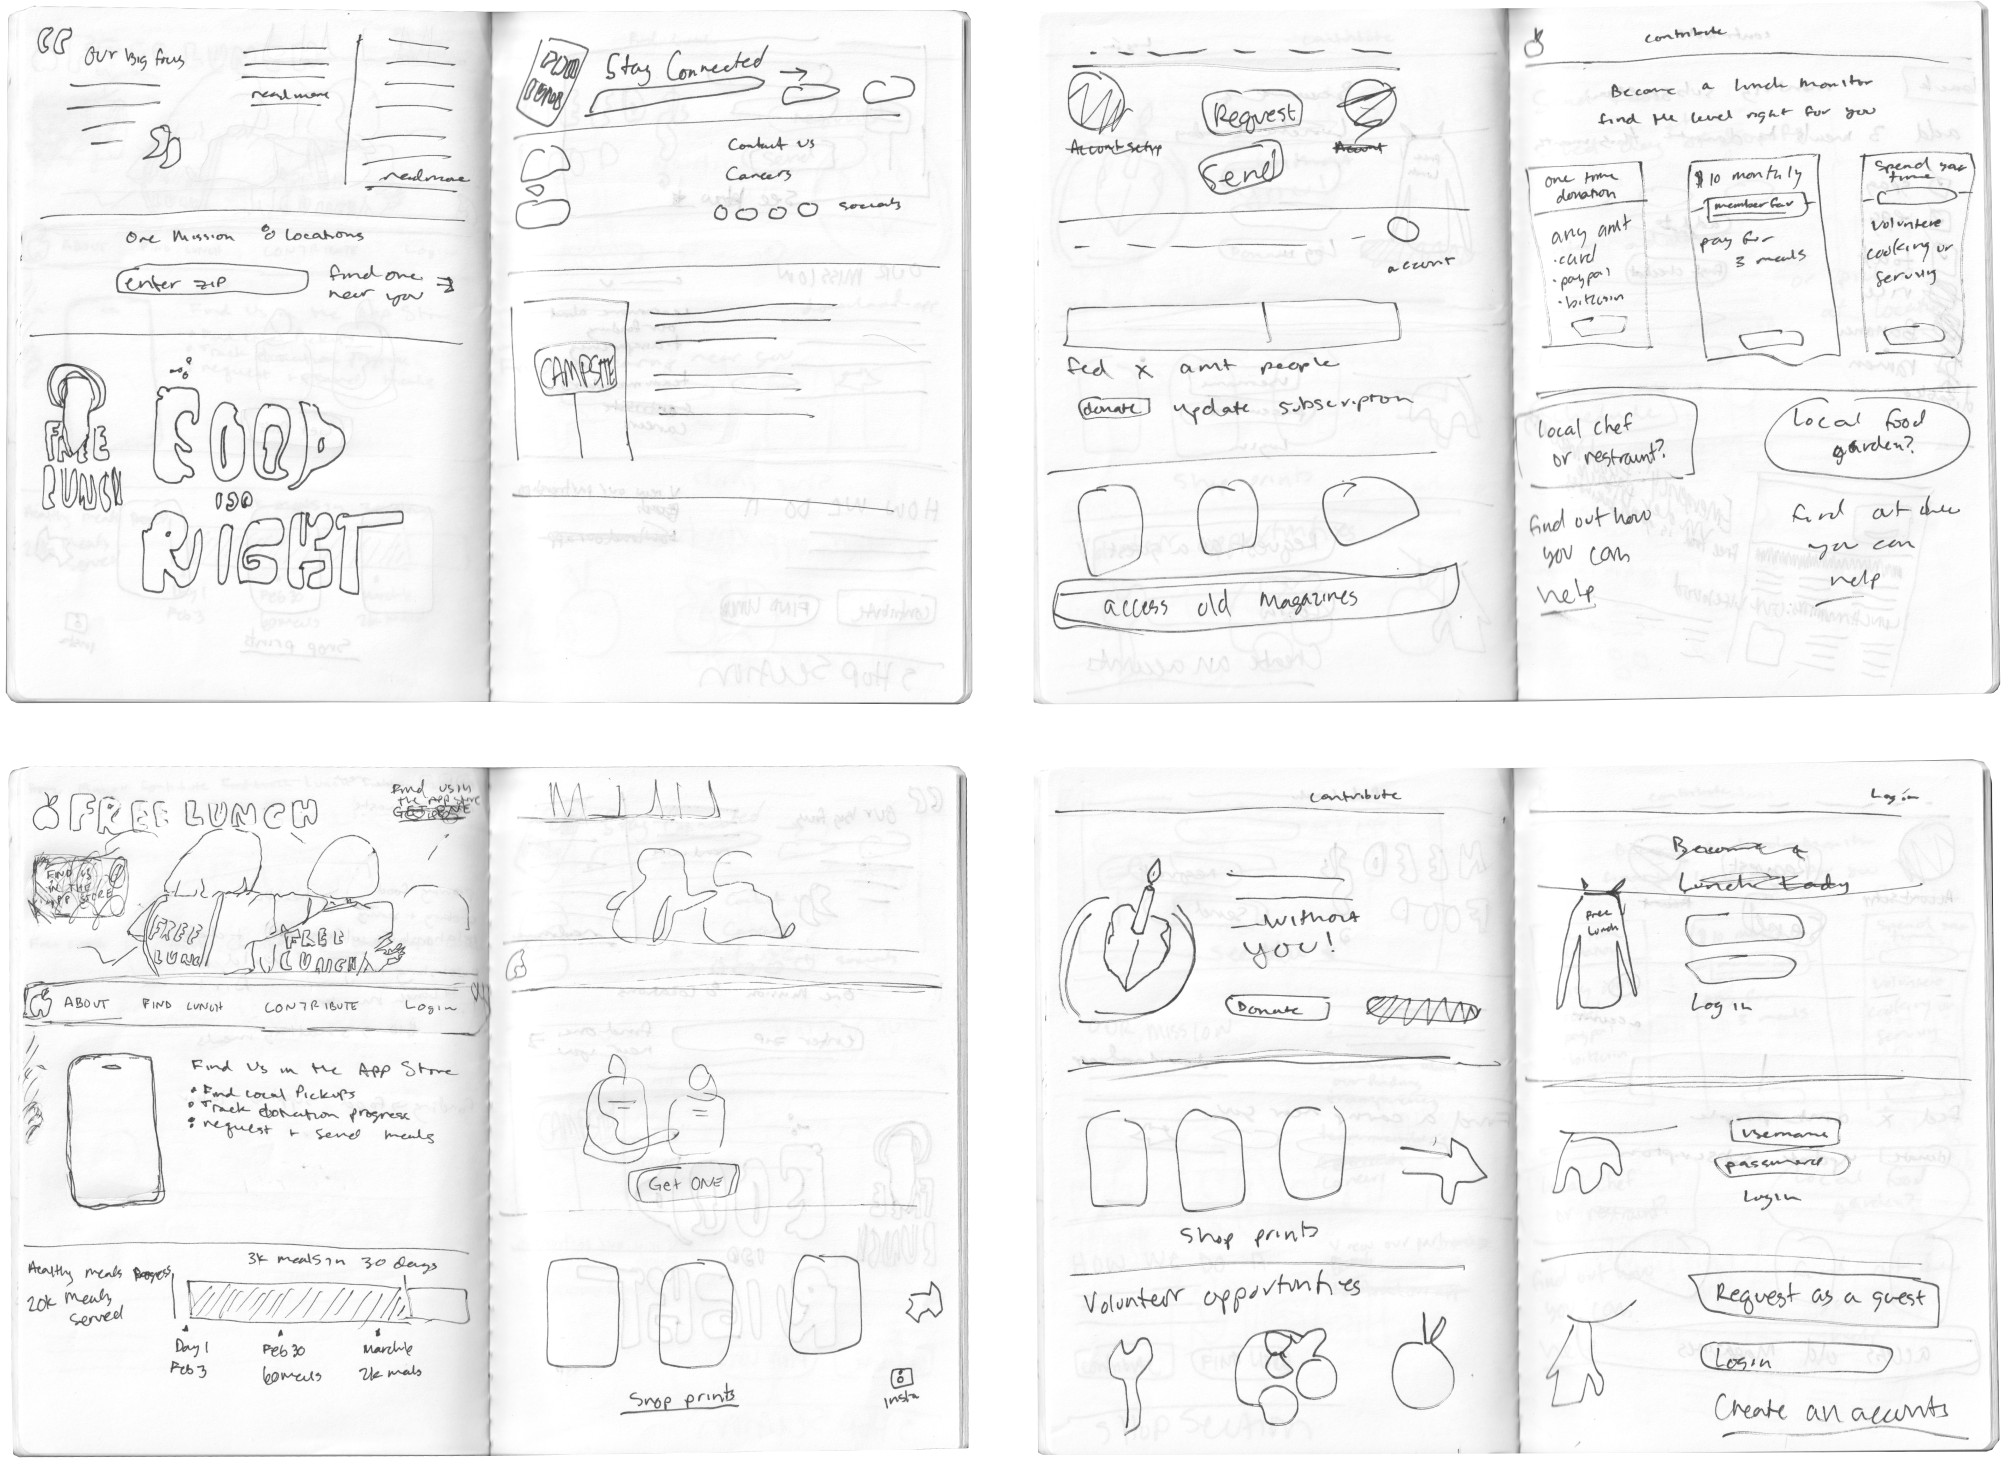 Our big focus
read more
read more
One Mission 8 locations
enter zip
find one
near you
FREE
LUNCH
FOOD
IS A
RIGHT
Stay Connected
Contact us
Careers
socials
CAMPSITE
Account setup
Request
Send
Account
account
fed x amt people
donate
update subscription
access old Magazines
contribute
Become a lunch monitor
find the level right for you
one time
donation
any amt
• card
• paypal
• bitcoin
$10 monthly
pay for
3 meals
Spend your
time
volunteer
cooking or
serving
local chef
or restraunt?
find out how
you can
help
Local food
garden?
find out how
you can
help
FREE LUNCH
Find us in
the app store
FIND US
IN THE
APP STORE
FREE
LUNC
FREE
LUNCH
ABOUT
FIND LUNCH
CONTRIBUTE
Login
Find Us in the App Store
• Find local Pickups
• Track donation progress
• request + send meals
Healthy meals Progress
20k meals
served
3k meals in 30 days
Day 1
Feb 3
Feb 30
60 meals
2k meals
Get ONE
Shop prints
insta
contribute
without
you!
Donate
Shop prints
Volunteer opportunities
Log in
Become a
Lunch Lady
Free
Lunch
Log in
username
password
Login
Request as a guest
Login
Create an accounts